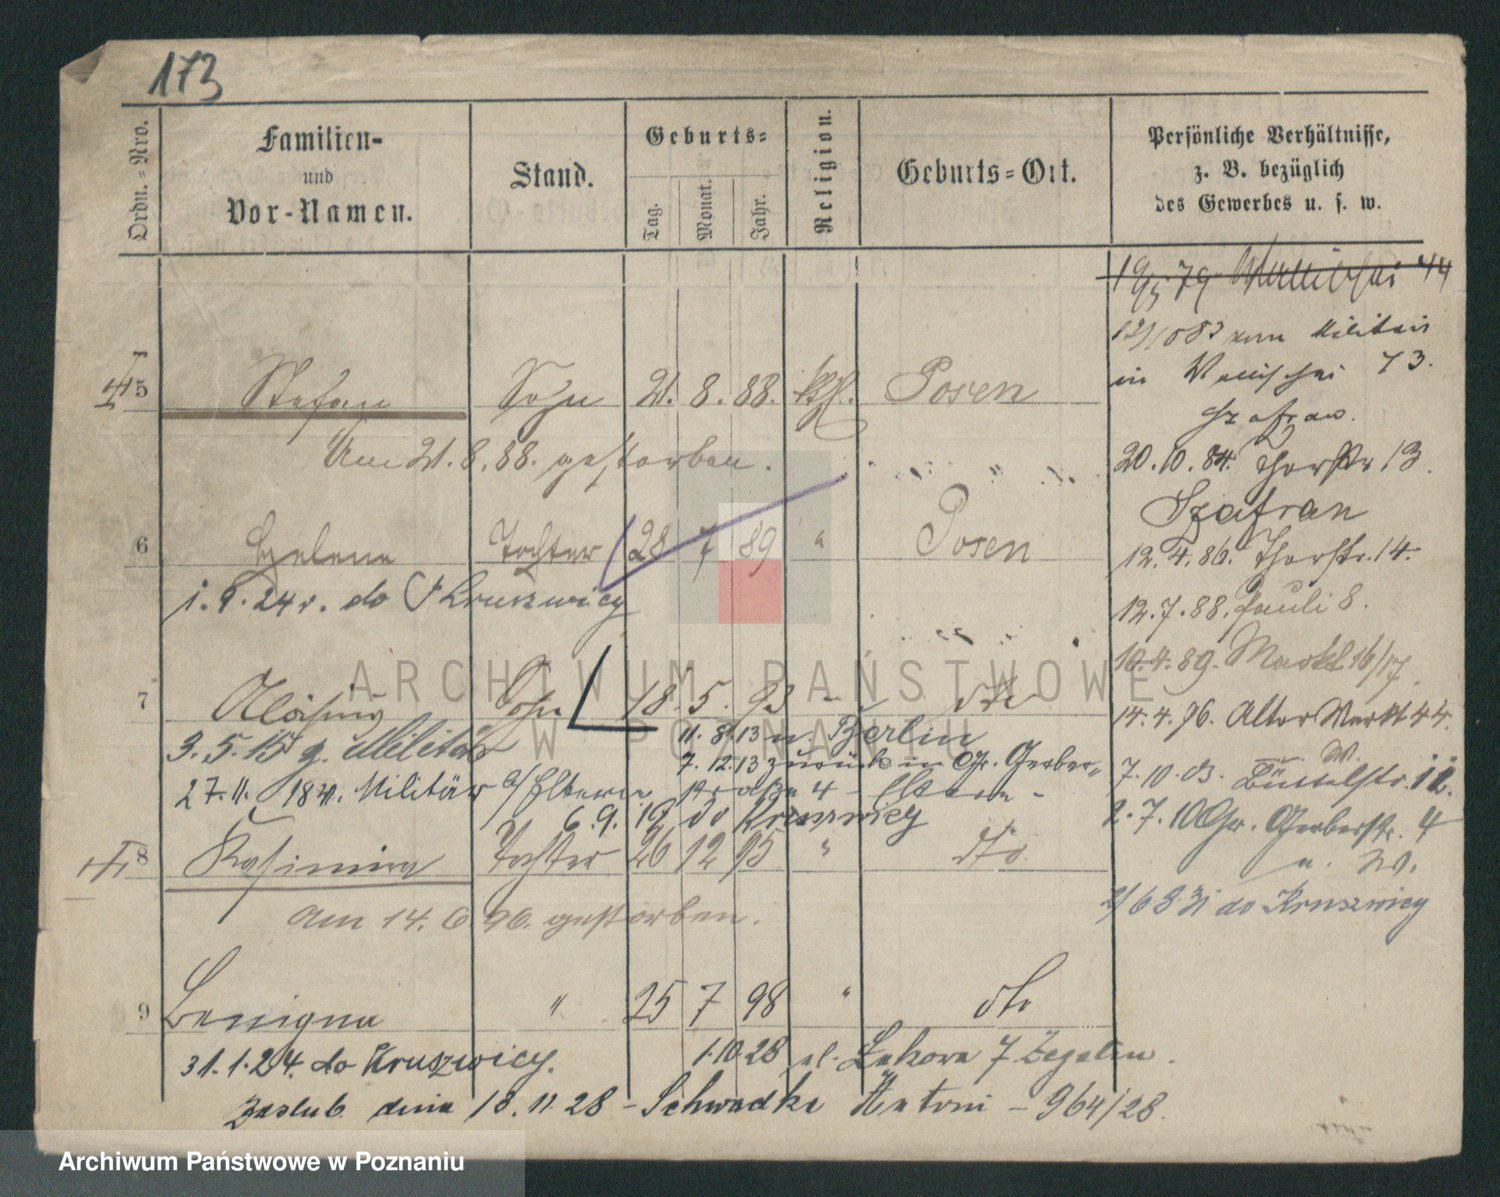 173
Ordn.-Nro.
Familien-
und
Vor-Namen.
Stand.
Geburts-
Tag.
Monat.
Jahr.
Religion.
Geburts-Ort.
Persönliche Verhältnisse,
z. B. bezüglich
des Gewerbes u. s. w.
5 Stefan Sohn 21. 8. 88. kath. Posen
Am 21. 8. 88. gestorben.
6 Helena Tochter 28 7 89 " Posen
1. 9. 24 r. do Kruszwicy
7 Sohn 18. 5. 93 dto
3. 5. 15 z. Militär 11. 8. 13 n. Berlin
7. 12. 13 zurück in Gr. Gerber-
27. 11. 18 Militär a/ Eltern straße 4 - Eltern -
6. 9. 19 do Kruszwicy
8 Kasimira Tochter 26 12 95 " dto
Am 14. 6. 96. gestorben.
9 Benigna " 25 7 98 " dto
31. 1. 24. do Kruszwicy. 1. 10. 28 ul. 7
zaślub. dnia 18. 11. 28 - Schwadke Antoni - 964/28.
vom Militair
in 73.
Szafran.
20. 10. 84. Thorstr 13.
Szafran
12. 4. 86. Thorstr. 14.
12. 7. 88. Pauli 8.
10. 4. 89. Markt 16/17.
14. 4. 96. Alter Markt 44.
W.
7. 10. 03. Büttelstr. 12.
2. 7. 10 Gr. Gerberstr. 4
u. W.
do Kruszwicy
ARCHIWUM PAŃSTWOWE
W POZNANIU
Archiwum Państwowe w Poznaniu